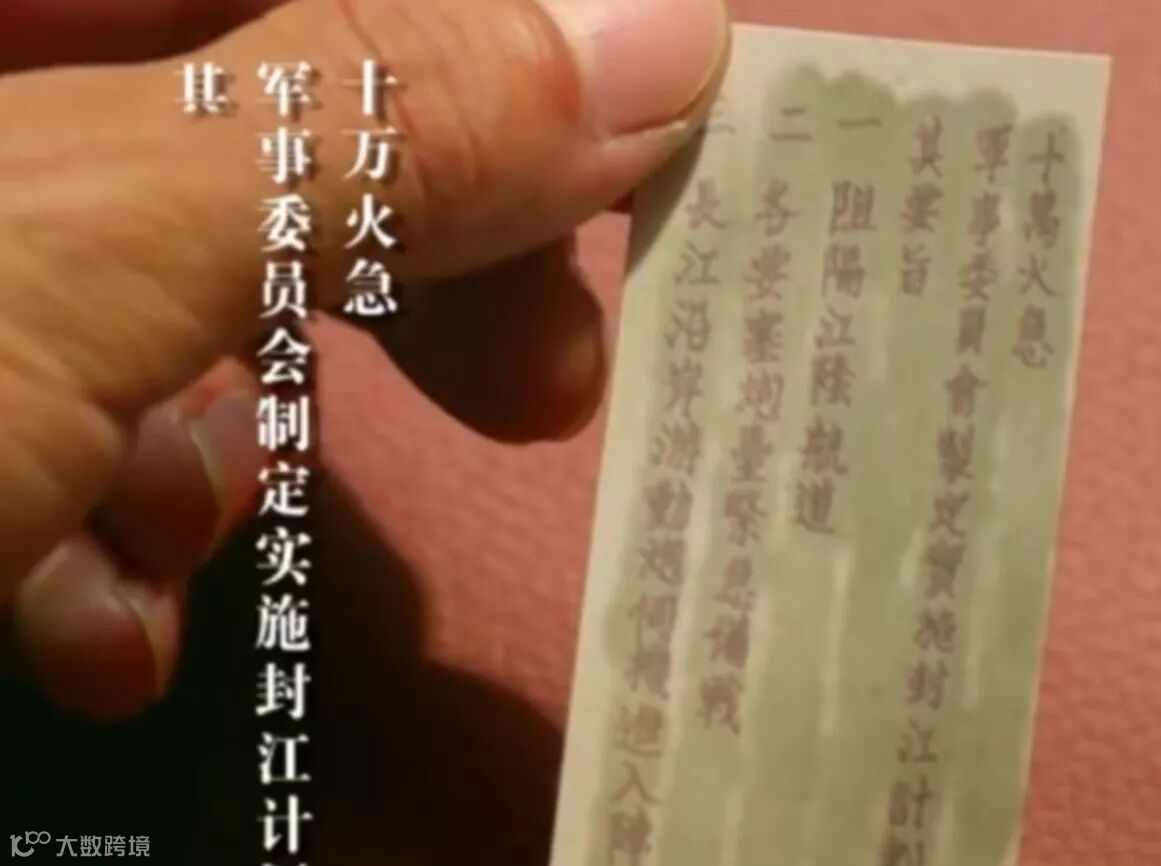 十万火急
军事委员会制定实施封江计
其
十萬火急
軍事委員會製定實施封江計
其要旨
一 阻陽江陰航道
二 各要塞炮臺緊急備戰
長江沿岸游動炮伺機進入陣
大数跨境